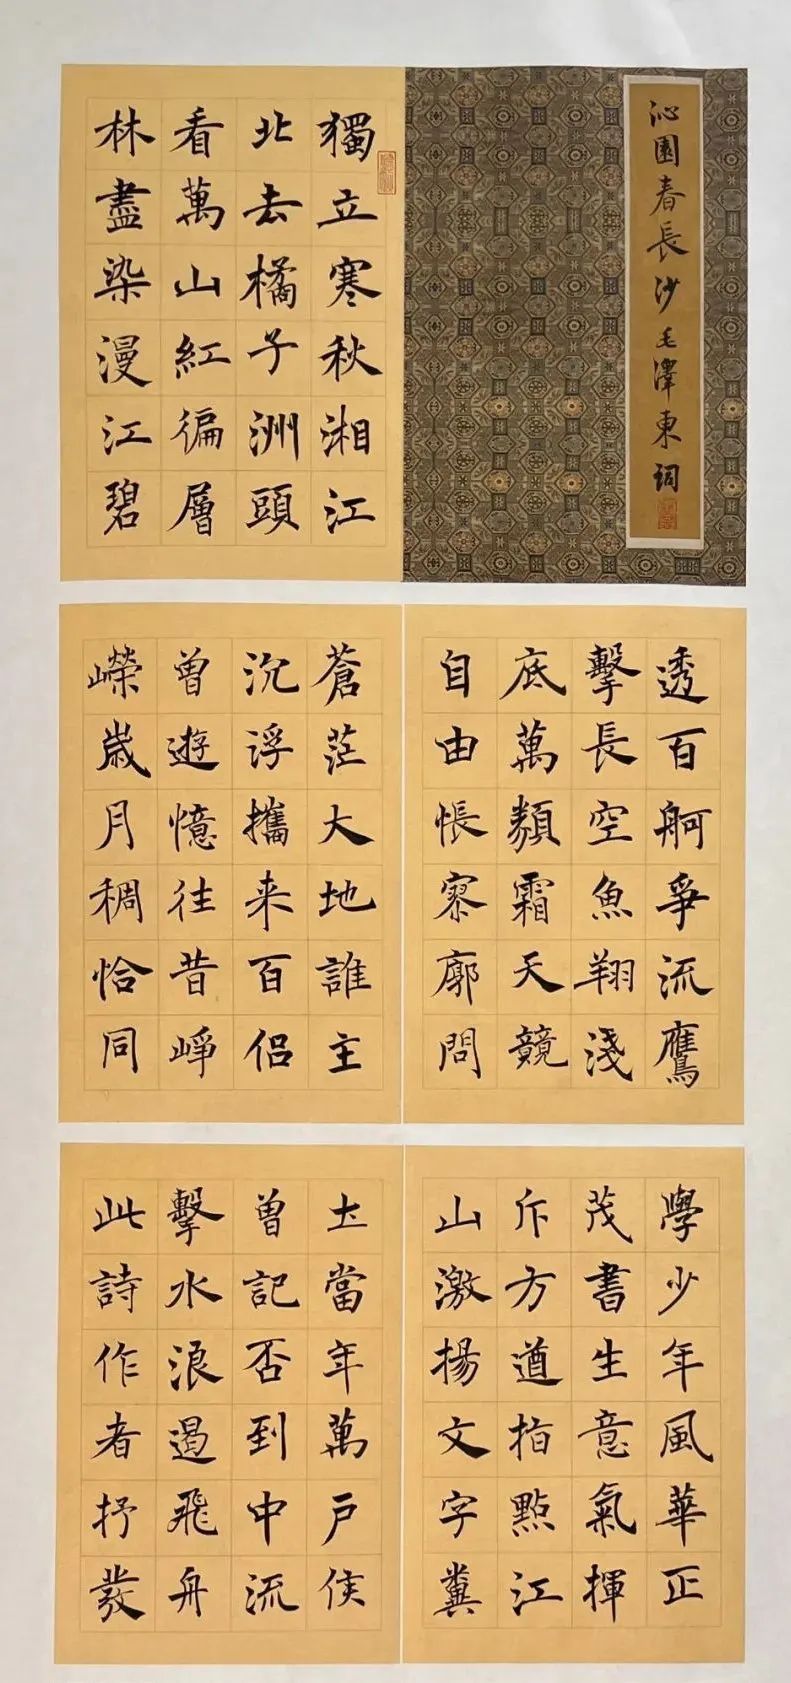 沁園春長沙毛澤東詞
獨立寒秋湘江
北去橘子洲頭
看萬山紅徧層
林盡染漫江碧
透百舸爭流鷹
擊長空魚翔淺
底萬類霜天競
自由悵寥廓問
蒼茫大地誰主
沉浮攜来百侣
曾遊憶往昔崢
嶸歲月稠恰同
學少年風華正
茂書生意氣揮
斥方遒指點江
山激揚文字糞
土當年萬戶侯
曾記否到中流
擊水浪遏飛舟
此詩作者抒發